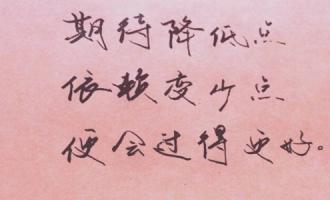 期待降低点
依赖变少点
便会过得更好。